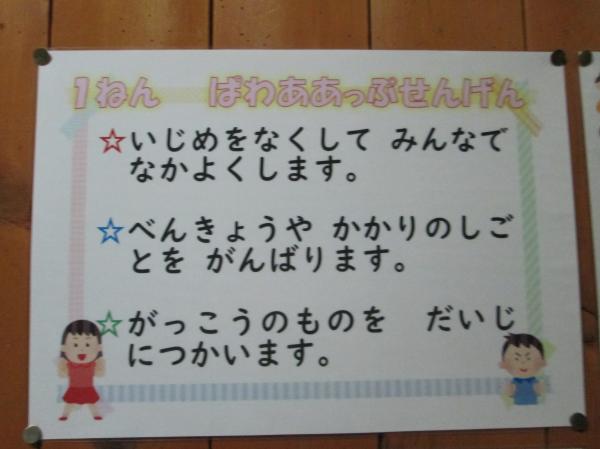 1ねん　ぱわああっぷせんげん
☆いじめをなくして みんなで
なかよくします。
☆べんきょうや かかりのしご
とを がんばります。
☆がっこうのものを　だいじ
につかいます。